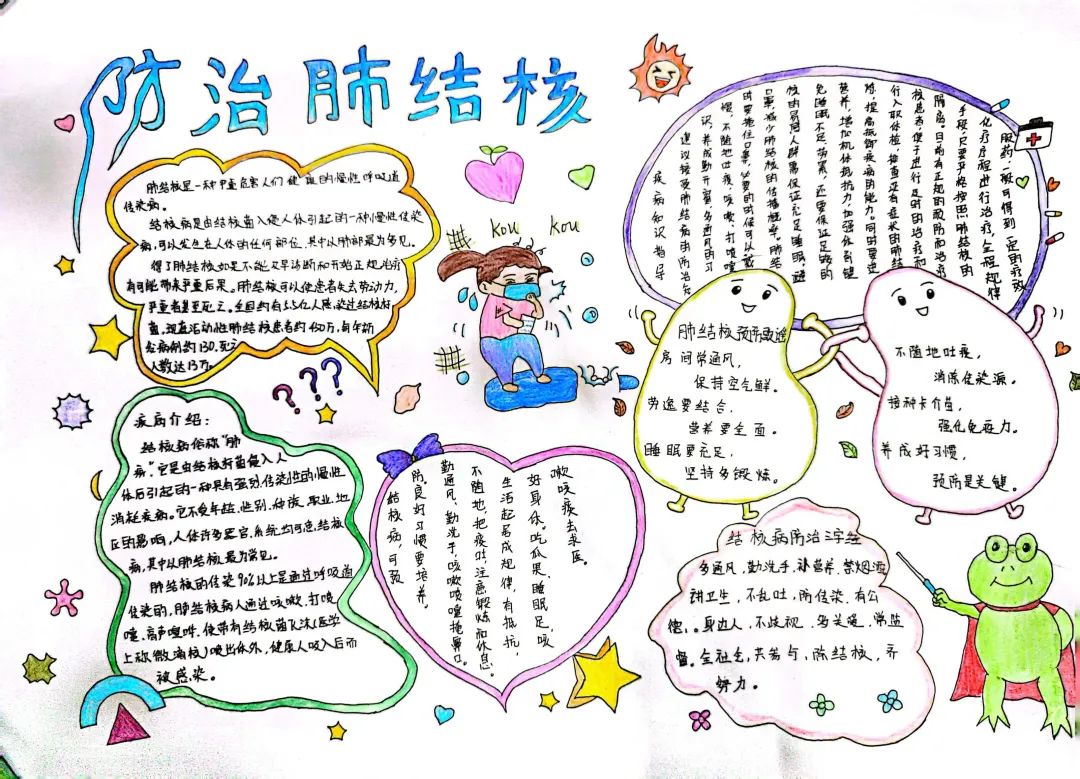 防治肺结核
肺结核是一种严重危害人们健康的慢性呼吸道
传染病。
结核病是由结核菌入侵人体引起的一种慢性传染
病,可以发生在人体的任何部位,其中以肺部最为多见。
得了肺结核如果不能及早诊断和开始正规治疗
有可能带来严重后果。肺结核可以使患者失去劳动力,
严重者甚至死亡。全国约有5.5亿人感染过结核杆
菌,现有活动性肺结核患者约450万,每年新
发病例约130.死亡
人数达13万。
kou kou
疾病知识指导
建议接受肺结核病的防治知
识,养成勤开窗多通风的习
惯,不随地吐痰,咳嗽、打喷嚏
时要掩住口鼻,必要的时候可以戴
口罩,减少肺结核的传播概率。肺结
核的易感人群需保证充足睡眠,避
免睡眠不足、劳累,还要保证足够的
营养,增加机体抵抗力,加强体育锻
炼,提高抵御疾病的能力。同时要进
行入职体检,排查没有症状的肺结
核患者,便于进行及时的治疗和
隔离。目前有正规的预防和治疗
手段,只要严格按照肺结核的
化疗疗程进行治疗,全程规律
服药,一般可得到一定的疗效
肺结核预防歌谣
房间常通风,
保持空气鲜。
劳逸要结合,
营养要全面。
睡眠要充足,
坚持多锻炼。
不随地吐痰,
消除传染源。
接种卡介苗,
强化免疫力。
养成好习惯,
预防是关键。
疾病介绍:
结核病俗称“肺
痨”,它是由结核杆菌侵入人
体后引起的一种具有强烈传染性的慢性
消耗疾病。它不受年结,性别,种族,职业,地
区的影响,人体许多器官,系统均可患结核
病,其中以肺结核最为常见。
肺结核的传染90%以上是通过呼吸道
传染的,肺结核病人通过咳嗽、打喷
嚏、高声喧哗,使带有结核菌飞沫(医学
上称微滴核)喷出体外,健康人吸入后而
被感染。
结核病,可预
防,良好习惯要培养。
勤通风、勤洗手,咳嗽喷嚏掩鼻口。
不随地,把痰吐,注意锻炼和休息。
生活起居成规律,有抵抗,
好身体。吃瓜果,睡眠足,咳
嗽咳痰去求医。
结核病防治三字经
多通风,勤洗手,补营养,禁烟酒
讲卫生,不乱吐,防传染,有公
德,。身边人,不歧视,多关爱,常监
督。全社会,共参与,除结核,齐
努力。